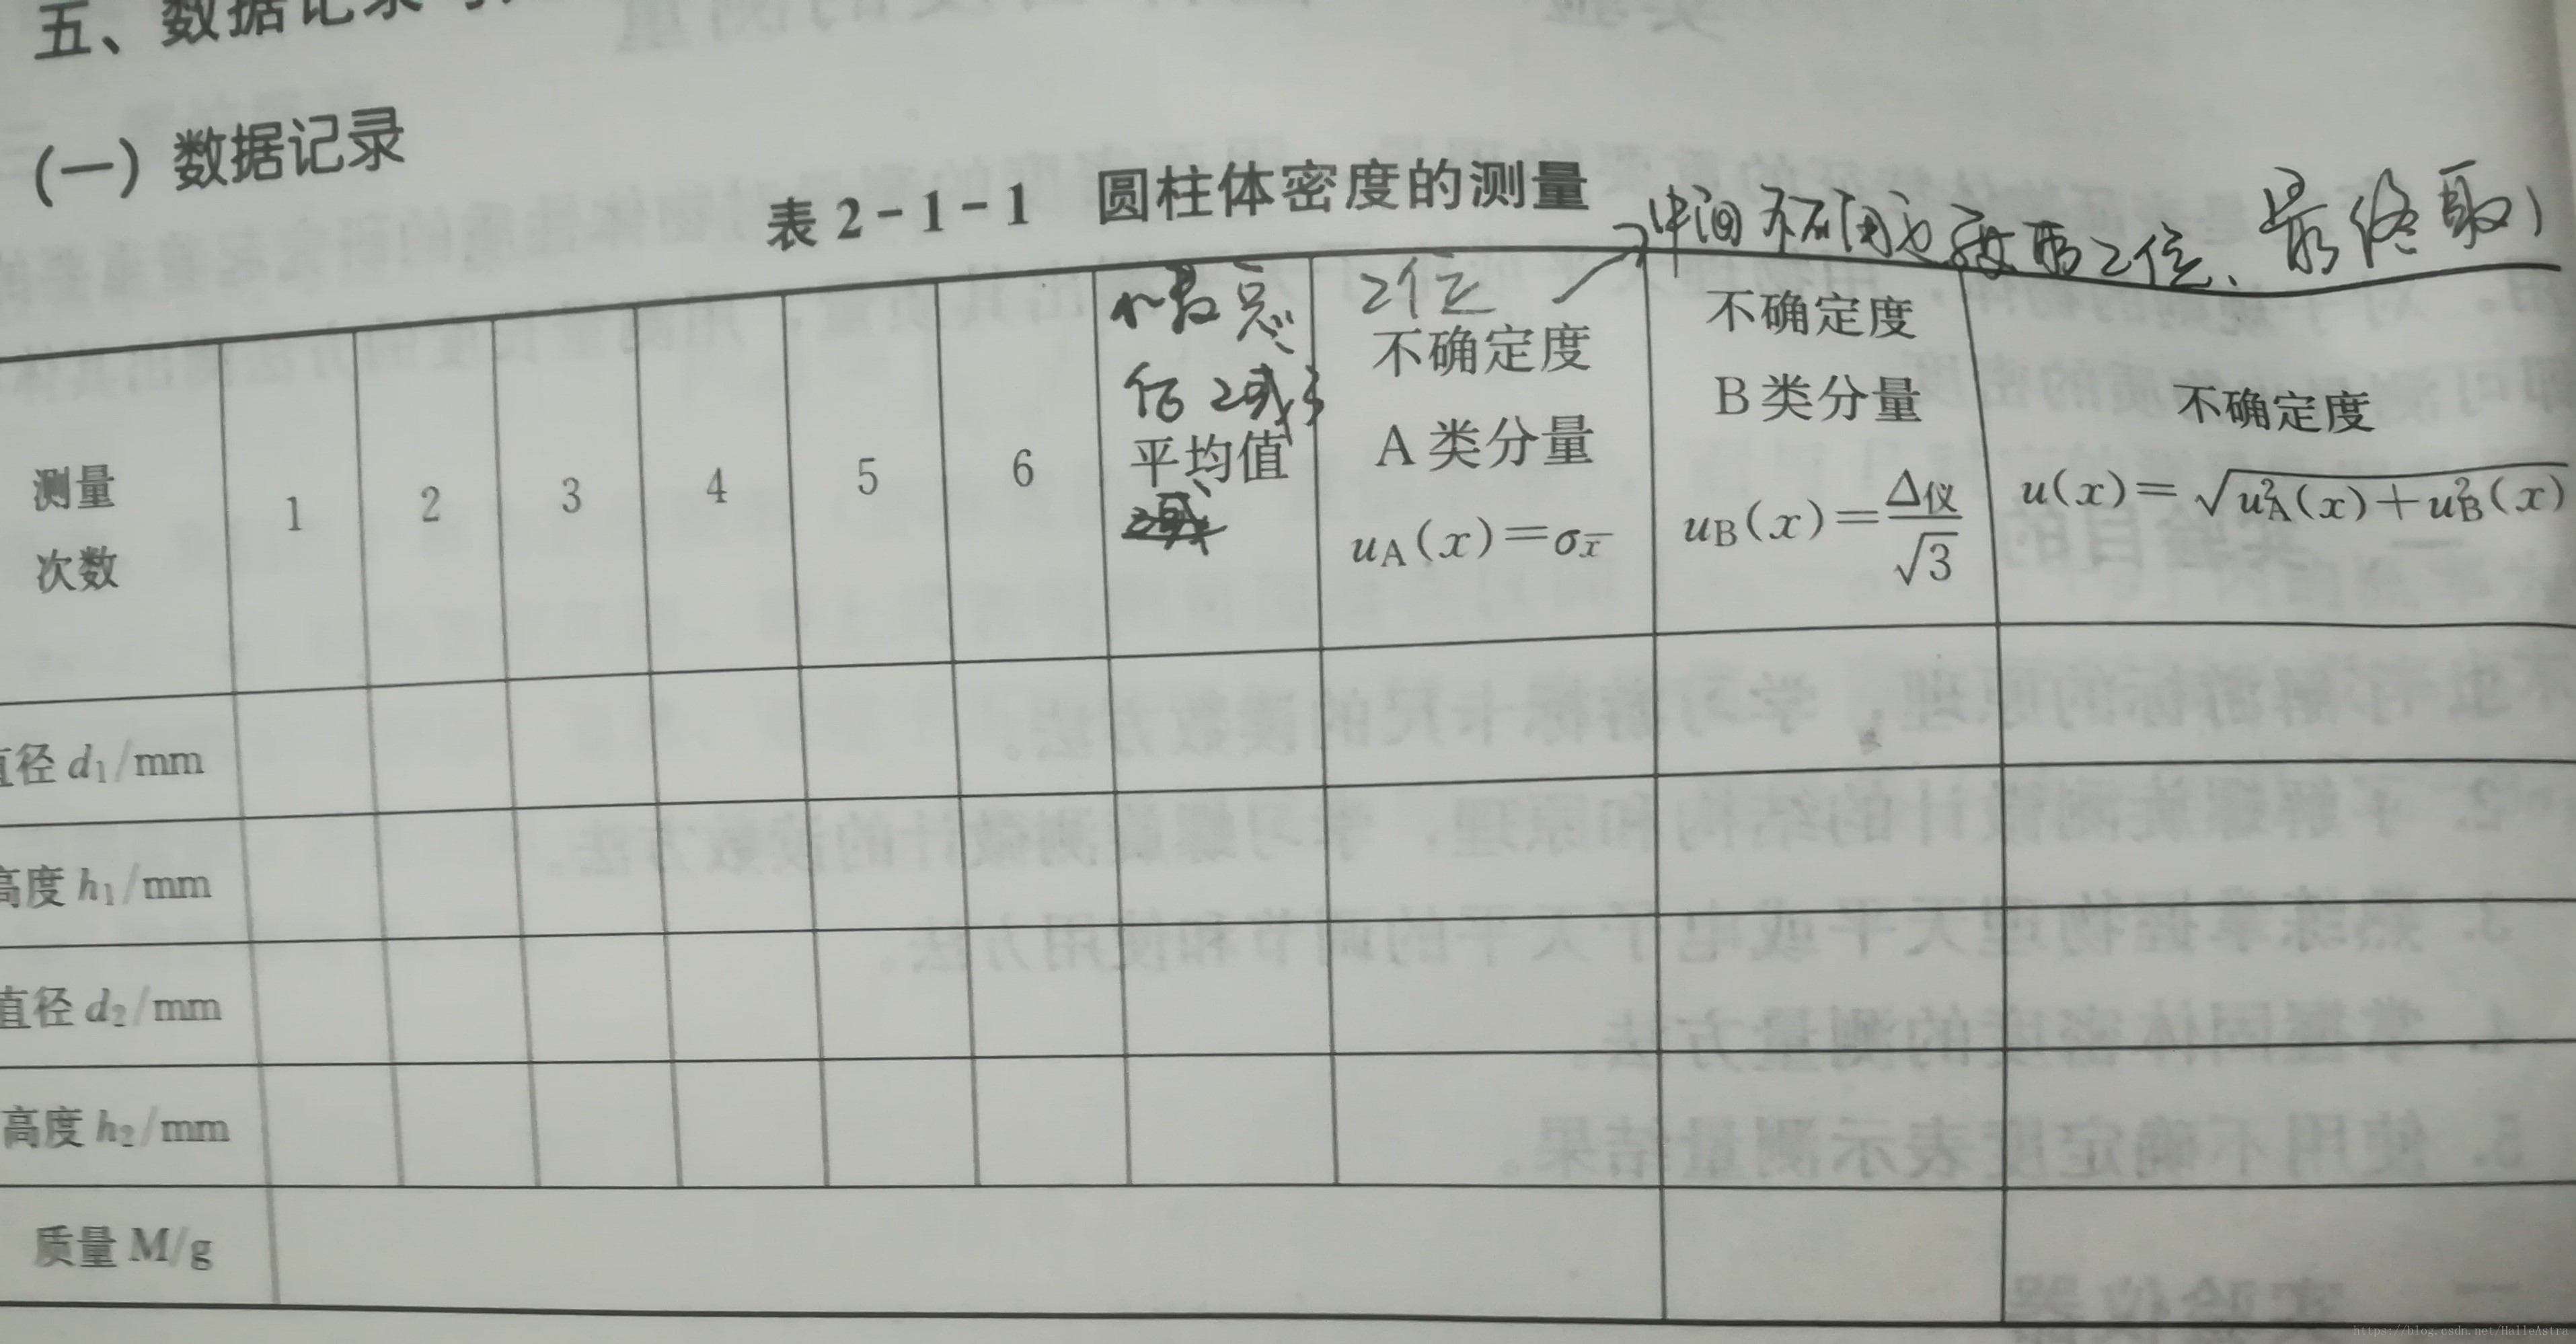 五、数据记录
(一) 数据记录
表 2-1-1 圆柱体密度的测量
中间不确定度取2位、最终取1
测量
次数
1
2
3
4
5
6
平均值
2位
不确定度
A 类分量
uA(x)=σx̄
不确定度
B 类分量
uB(x)=Δ仪/√3
不确定度
u(x)=√(uA²(x)+uB²(x))
直径 d₁/mm
高度 h₁/mm
直径 d₂/mm
高度 h₂/mm
质量 M/g
https://blog.csdn.net/HalleAstra